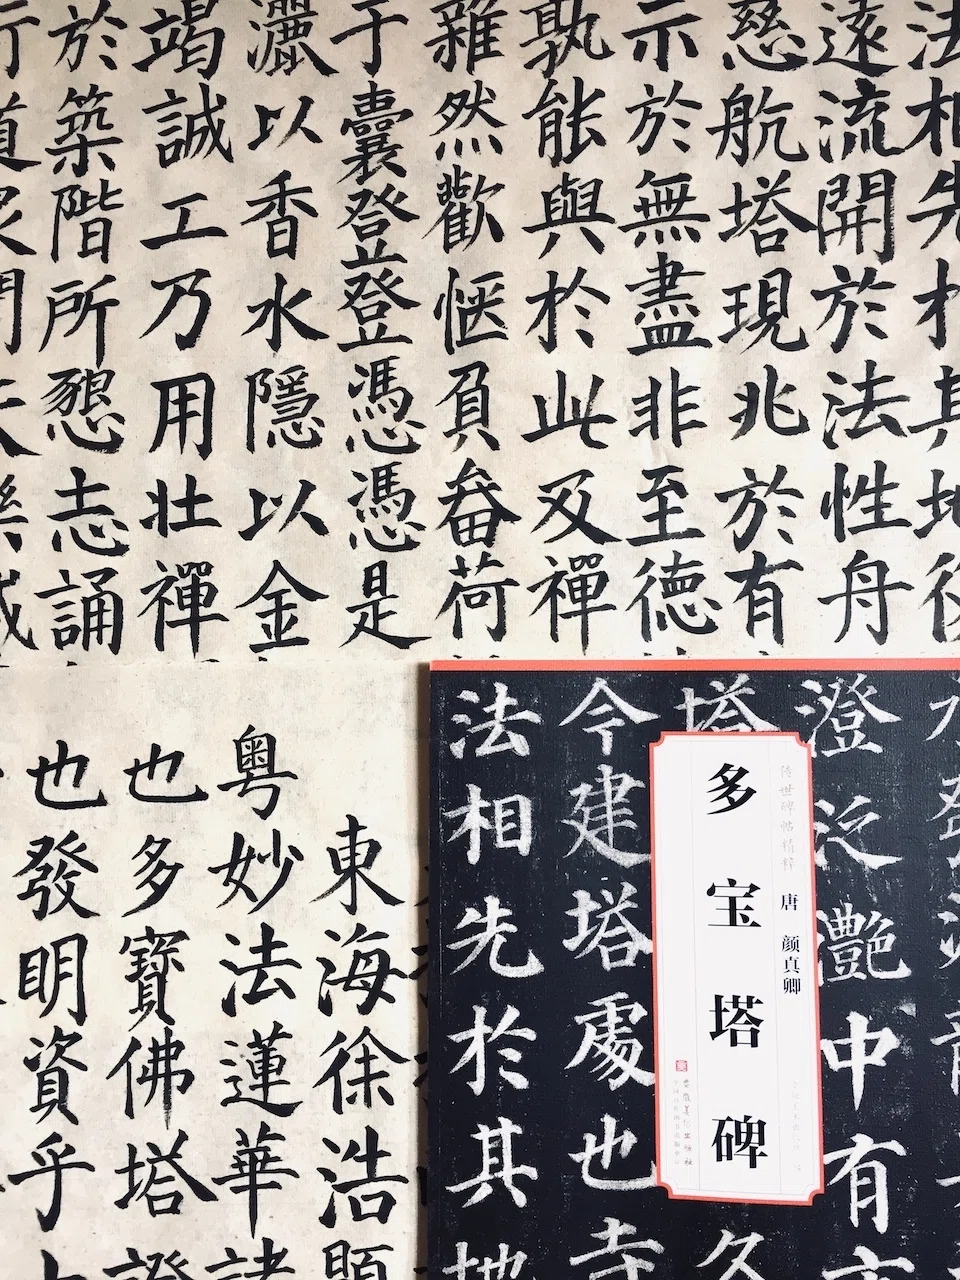 法相先於其地
遠流開於法性舟
慈航塔現兆於有
示於無盡非至德
孰能與於此及禪
雜然歡愜負畚荷
于囊登登憑憑是
灑以香水隱以金
竭誠工乃用壯禪
於築階所懇志誦
東海徐浩題
粤妙法蓮華諸
也多寶佛塔證
也發明資乎
澄泛灩中有
塔
久
今建塔處也寺
法相先於其地
传世碑帖精粹
唐 颜真卿
多宝塔碑
安徽美术出版社